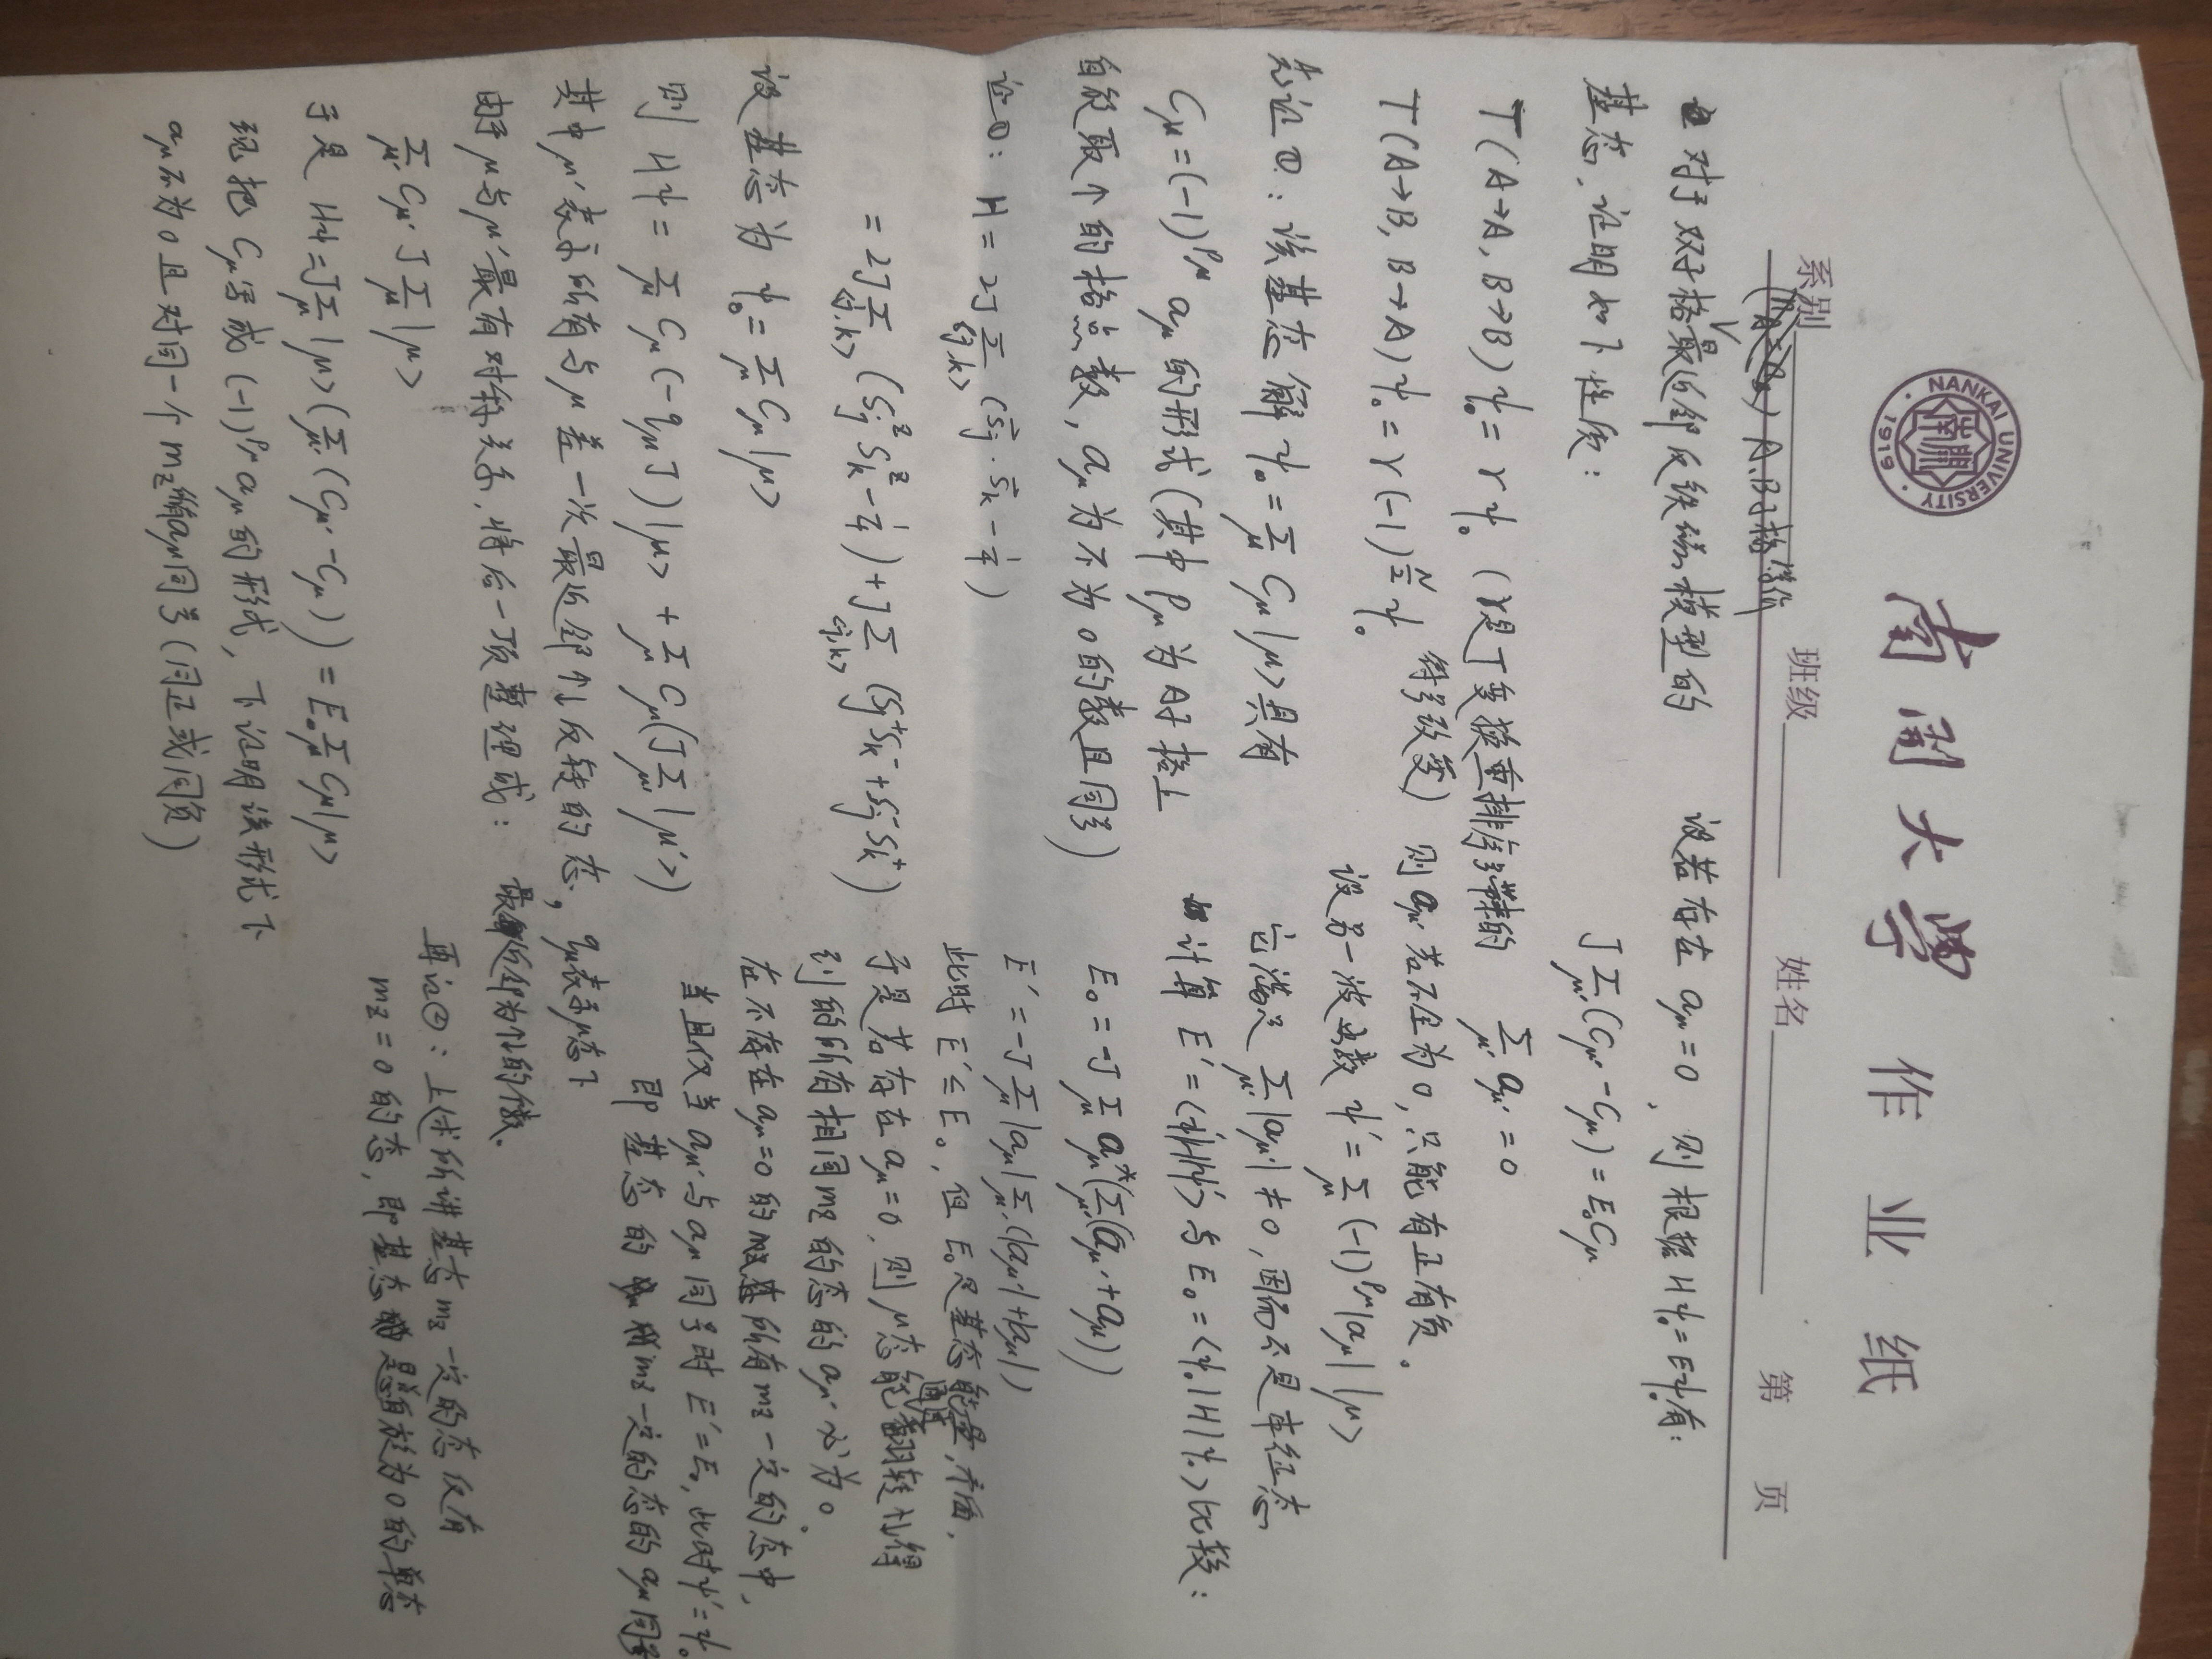 NANKAI UNIVERSITY
南開
1919
南開大學 作业纸
系别 班级 姓名 第 页
A、B子格等价
对于双子格最近邻反铁磁模型的
基态,证明如下性质:
T(A→A, B→B)ψ₀ = γψ₀ (γ是T变换重排序号带来的
符号改变)
T(A→B, B→A)ψ₀ = γ(-1)^{N/2}ψ₀
先证①:该基态解 ψ₀ = Σ_μ C_μ|μ> 具有
C_μ = (-1)^{P_μ} a_μ 的形式(其中 P_μ 为A子格上
自旋取↑的格点数, a_μ 为不为0的数且同号)
证①: H = 2J Σ_{<j,k>} (S⃗_j · S⃗_k - 1/4)
= 2J Σ_{<j,k>} (S_j^z S_k^z - 1/4) + J Σ_{<j,k>} (S_j^+ S_k^- + S_j^- S_k^+)
设基态为 ψ₀ = Σ_μ C_μ|μ>
则 Hψ = Σ_μ C_μ(-q_μ J)|μ> + Σ_μ C_μ(J Σ_μ'|μ'>)
其中μ'表示所有与μ差一次最近邻↑↓反转的态, q_μ表示μ态下
最近邻为↑↓的个数.
由于μ与μ'最有对称关系,将后一项整理成:
Σ_μ' C_μ' J Σ_μ |μ>
于是 Hψ = J Σ_μ |μ>(Σ_μ' (C_μ' - C_μ)) = E₀ Σ_μ C_μ|μ>
现把 C_μ写成 (-1)^{P_μ} a_μ 的形式, 下证明该形式下
a_μ不为0且对同一个 m_z 所有a_μ同号(同正或同负)
设若存在 a_μ = 0, 则根据 Hψ₀ = Eψ₀有:
J Σ_μ' (C_μ' - C_μ) = E₀C_μ
Σ_μ' a_μ' = 0
则 a_μ' 若不全为0, 只能有正有负。
设另一波函数 ψ' = Σ_μ (-1)^{P_μ}|a_μ| |μ>
它满足 Σ_μ' |a_μ'| ≠ 0, 因而不是本征态
计算 E' = <ψ'|H|ψ'> 与 E₀ = <ψ₀|H|ψ₀> 比较:
E₀ = -J Σ_μ a_μ^*(Σ_μ'(a_μ' + a_μ))
E' = -J Σ_μ |a_μ| Σ_μ' (|a_μ'| + |a_μ|)
此时 E' ≤ E₀, 但 E₀是基态能量,矛盾,
于是若存在 a_μ = 0, 则μ态能通过翻转↑↓得
到的所有相同m_z 的态的 a_μ' 必为0。
在不存在 a_μ = 0 的所有 m_z 一定的态中,
当且仅当 a_μ'与 a_μ 同号时 E' = E₀, 此时ψ' = ψ₀
即基态的 m_z 一定的态的 a_μ 同号
再证②: 上述所讲基态 m_z 一定的态仅有
m_z = 0 的态, 即基态是总自旋为0的单态